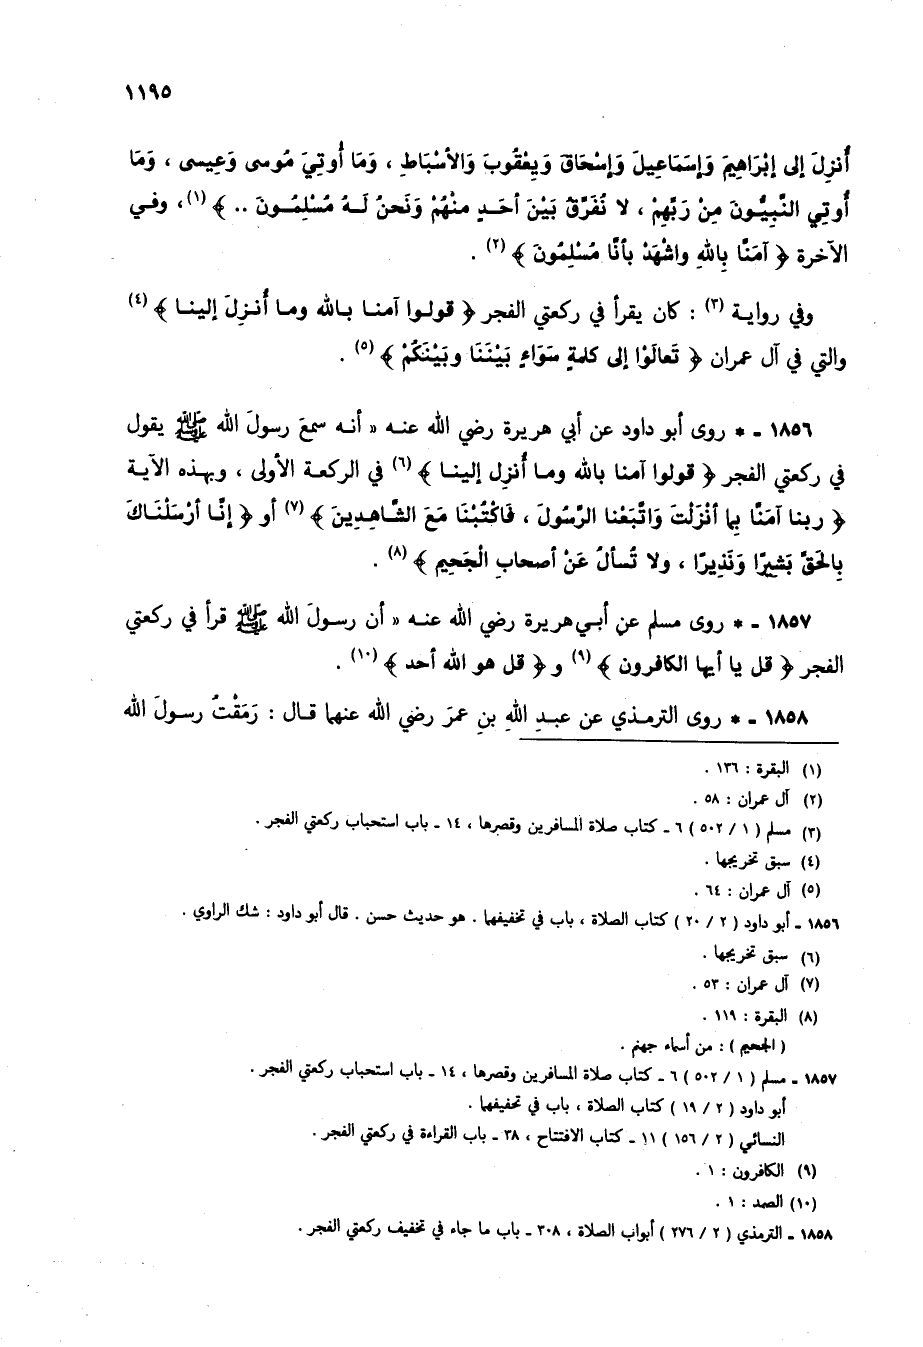 ١١٩٥
أُنزِلَ إلى إبْرَاهِيمَ وَإسْمَاعِيلَ وَإسْحَاقَ وَيعْقُوبَ وَالأسْبَاطِ ، وَمَا أُوتِيَ مُوسى وَعِيسى ، وَمَا
أُوتِي النَّبِيُّونَ مِنْ رَبِّهِمْ ، لا نُفَرِّقُ بَيْنَ أحَدٍ مِنْهُمْ وَنَحنُ لَهُ مُسْلِمُونَ .. ﴾ (١)، وفي
الآخرة ﴿ آمَنَّا بِاللهِ واشْهَدْ بأنَّا مُسْلِمُونَ ﴾ (٢) .
وفي رواية (٣) : كان يقرأ في ركعتي الفجر ﴿ قولوا آمنا بالله وما أُنزِلَ إلينا ﴾ (٤)
والتي في آل عمران ﴿ تَعالَوْا إلى كلمةٍ سَوَاءٍ بَيْنَنَا وبَيْنَكُمْ ﴾ (٥) .
١٨٥٦ - * روى أبو داود عن أبي هريرة رضي الله عنه « أنه سمعَ رسولَ الله ﷺ يقول
في ركعتي الفجر ﴿ قولوا آمنا بالله وما أُنزل إلينا ﴾ (٦) في الركعة الأولى ، وبهذه الآية
﴿ ربنا آمَنَّا بِما أنْزَلْتَ وَاتَّبَعْنا الرَّسُولَ ، فَاكْتُبْنَا مَعَ الشَّاهِدِينَ ﴾ (٧) أو ﴿ إنَّا أرْسَلْنَاكَ
بِالحَقِّ بَشيرًا وَنَذِيرًا ، ولا تُسألُ عَنْ أصحابِ الْجَحيمِ ﴾ (٨) .
١٨٥٧ - * روى مسلم عن أبي هريرة رضي الله عنه « أن رسولَ الله ﷺ قرأ في ركعتي
الفجر ﴿ قل يا أيها الكافرون ﴾ (٩) و ﴿ قل هو الله أحد ﴾ (١٠) .
١٨٥٨ - * روى الترمذي عن عبدِ اللهِ بنِ عمرَ رضي الله عنهما قال : رَمَقْتُ رسولَ الله
(١) البقرة : ١٣٦ .
(٢) آل عمران : ٥٨ .
(٣) مسلم ( ١ / ٥٠٢ ) ٦ - كتاب صلاة المسافرين وقصرها ، ١٤ - باب استحباب ركعتي الفجر .
(٤) سبق تخريجها .
(٥) آل عمران : ٦٤ .
١٨٥٦ - أبو داود ( ٢ / ٢٠ ) كتاب الصلاة ، باب في تخفيفها . هو حديث حسن . قال أبو داود : شك الراوي .
(٦) سبق تخريجها .
(٧) آل عمران : ٥٣ .
(٨) البقرة : ١١٩ .
( الجحيم ) : من أسماء جهنم .
١٨٥٧ - مسلم ( ١ / ٥٠٢ ) ٦ - كتاب صلاة المسافرين وقصرها ، ١٤ - باب استحباب ركعتي الفجر .
أبو داود ( ٢ / ١٩ ) كتاب الصلاة ، باب في تخفيفها .
النسائي ( ٢ / ١٥٦ ) ١١ - كتاب الافتتاح ، ٣٨ - باب القراءة في ركعتي الفجر .
(٩) الكافرون : ١ .
(١٠) الصمد : ١ .
١٨٥٨ - الترمذي ( ٢ / ٢٧٦ ) أبواب الصلاة ، ٣٠٨ - باب ما جاء في تخفيف ركعتي الفجر .